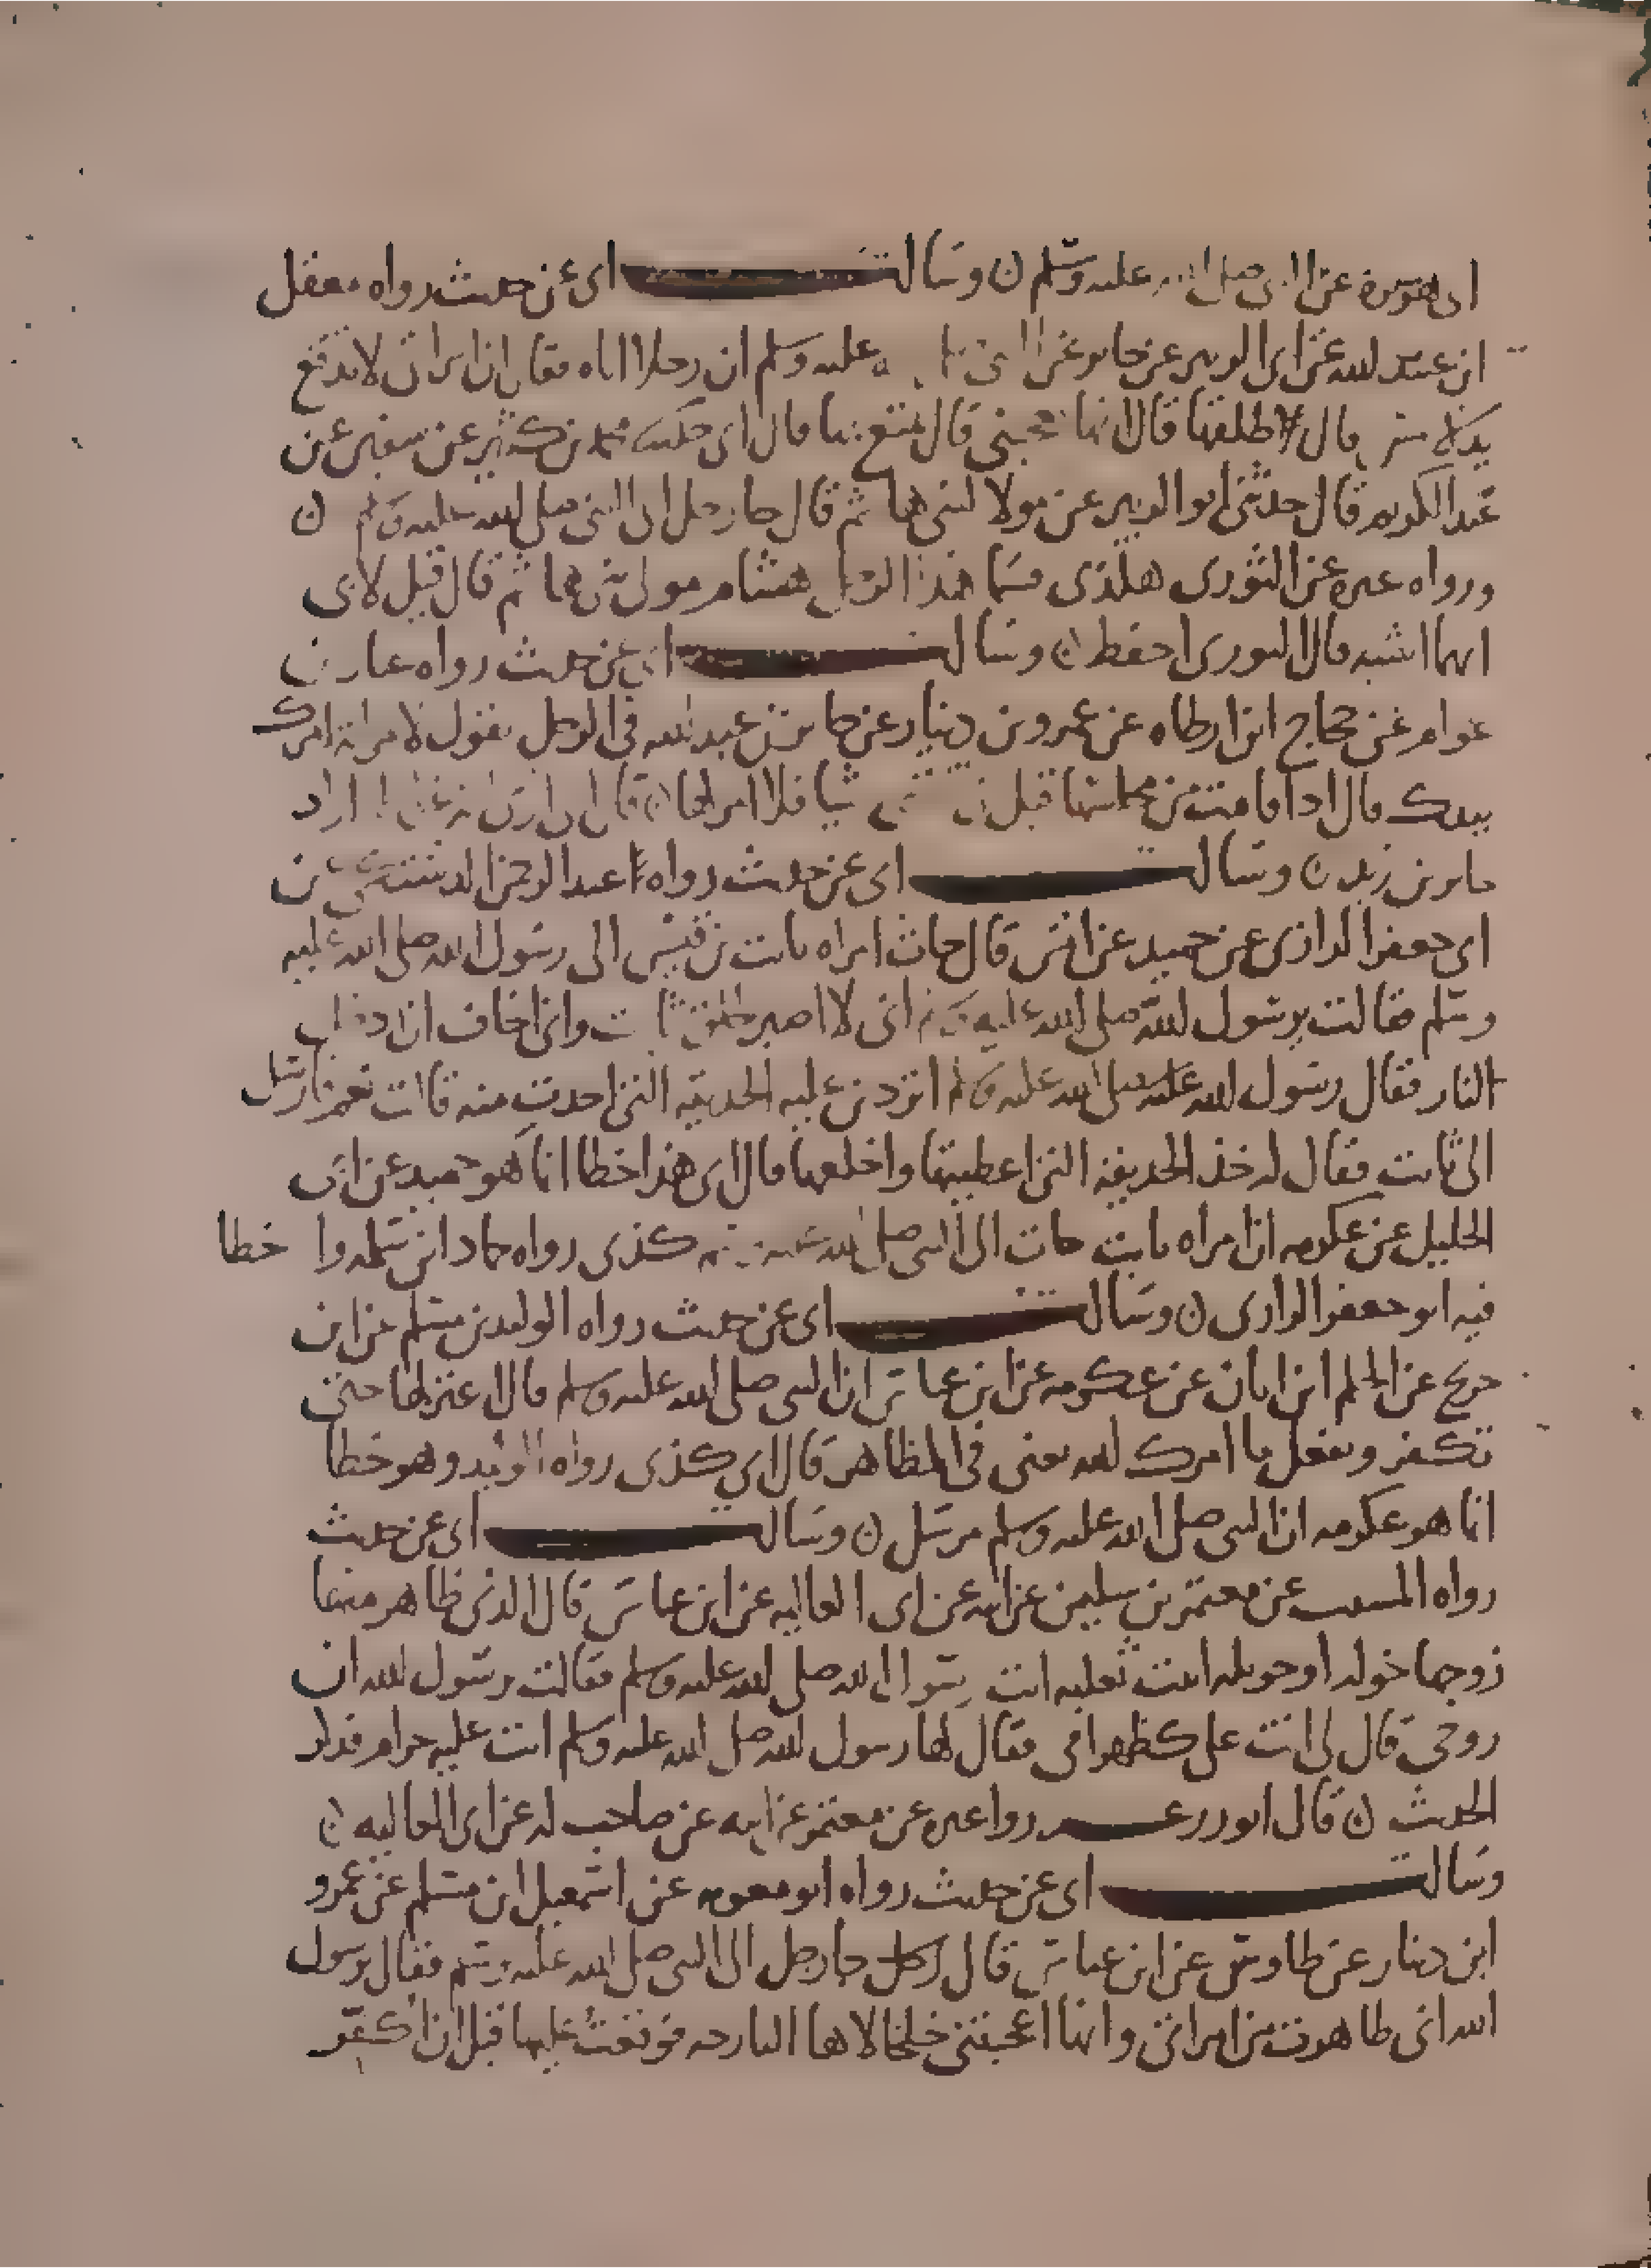 ابى هريرة عن النبى صلى الله عليه وسلم ن وسالت ابى عن حديث رواه معقل
ابن عبيد الله عن ابى الزبير عن جابر عن النبى عليه وسلم ان رجلا اتاه فقال ان امراتى لا تدفع
يد لامس قال طلقها قال انها تعجبنى قال تمتع بها قال ابى حدثنا محمد بن كثير عن سفين عن
عبد الكريم قال حدثنى ابو الزبير عن مولا لبنى هاشم قال جا رجل الى النبى صلى الله عليه وسلم ن
ورواه غيره عن الثورى هكذى فسما هذا الرجل هشام مولى بنى هاشم قال قيل لابى
ايهما اشبه قال الثورى احفظ ن وسالت ابى عن حديث رواه عباد بن
عوام عن حجاج ابن ارطاه عن عمرو بن دينار عن جابر بن عبد الله فى الرجل يقول لامراته امرك
بيدك قال اذا قامت من مجلسها قبل ان شيا فلا امر لها ن قال ابى اراد
جابر بن زيد ن وسالت ابى عن حديث رواه عبد الرحمن الدشتكى عن
ابى جعفر الرازى عن حميد عن انس قال جات امراه ثابت بن قيس الى رسول الله صلى الله عليه
وسلم فقالت يرسول الله صلى الله عليه وسلم انى لا اصبر خلق ثابت وانى اخاف ان ادخل
النار فقال رسول الله عليه صلى الله عليه وسلم اتردين عليه الحديقه التى اخذت منه قالت نعم فارسل
الى ثابت فقال له خذ الحديقه التى اعطيتها واخلعها قال ابى هذا خطا انما هو حميد عن ابى
الخليل عن عكرمه ان امراه ثابت جات الى النبى صلى الله عليه وسلم كذى رواه حماد ابن سلمه واخطا
فيه ابو جعفر الرازى ن وسالت ابى عن حديث رواه الوليد بن مسلم عن ابن
جريج عن الحكم ابن ابان عن عكرمه عن ابن عباس ان النبى صلى الله عليه وسلم قال اعتزلها حتى
تكفر وتفعل ما امرك الله يعنى فى المظاهر قال ابي كذى رواه الوليد وهو خطا
انما هو عكرمه ان النبى صلى الله عليه وسلم مرسل ن وسالت ابى عن حديث
رواه المسيب عن معتمر بن سليمن عن ابيه عن ابى العاليه عن ابن عباس قال الذى ظاهر منها
زوجها خوله او خويله ابنت ثعلبه اتت رسول الله صلى الله عليه وسلم فقالت يرسول الله ان
زوجى قال لى انت على كظهر امى فقال لها رسول الله صلى الله عليه وسلم انت عليه حرام فذكر
الحديث ن قال ابو زرعه روا غيره عن معتمر عن ابيه عن صاحب له عن ابى العاليه ن
وسالت ابى عن حديث رواه ابو معويه عن اسمعيل ابن مسلم عن عمرو
ابن دينار عن طاوس عن ابن عباس قال جا رجل الى النبى صلى الله عليه وسلم فقال يرسول
الله انى ظاهرت من امراتى وانها اعجبتنى خلخالاها البارحه فوقعت عليها قبل ان اكفر